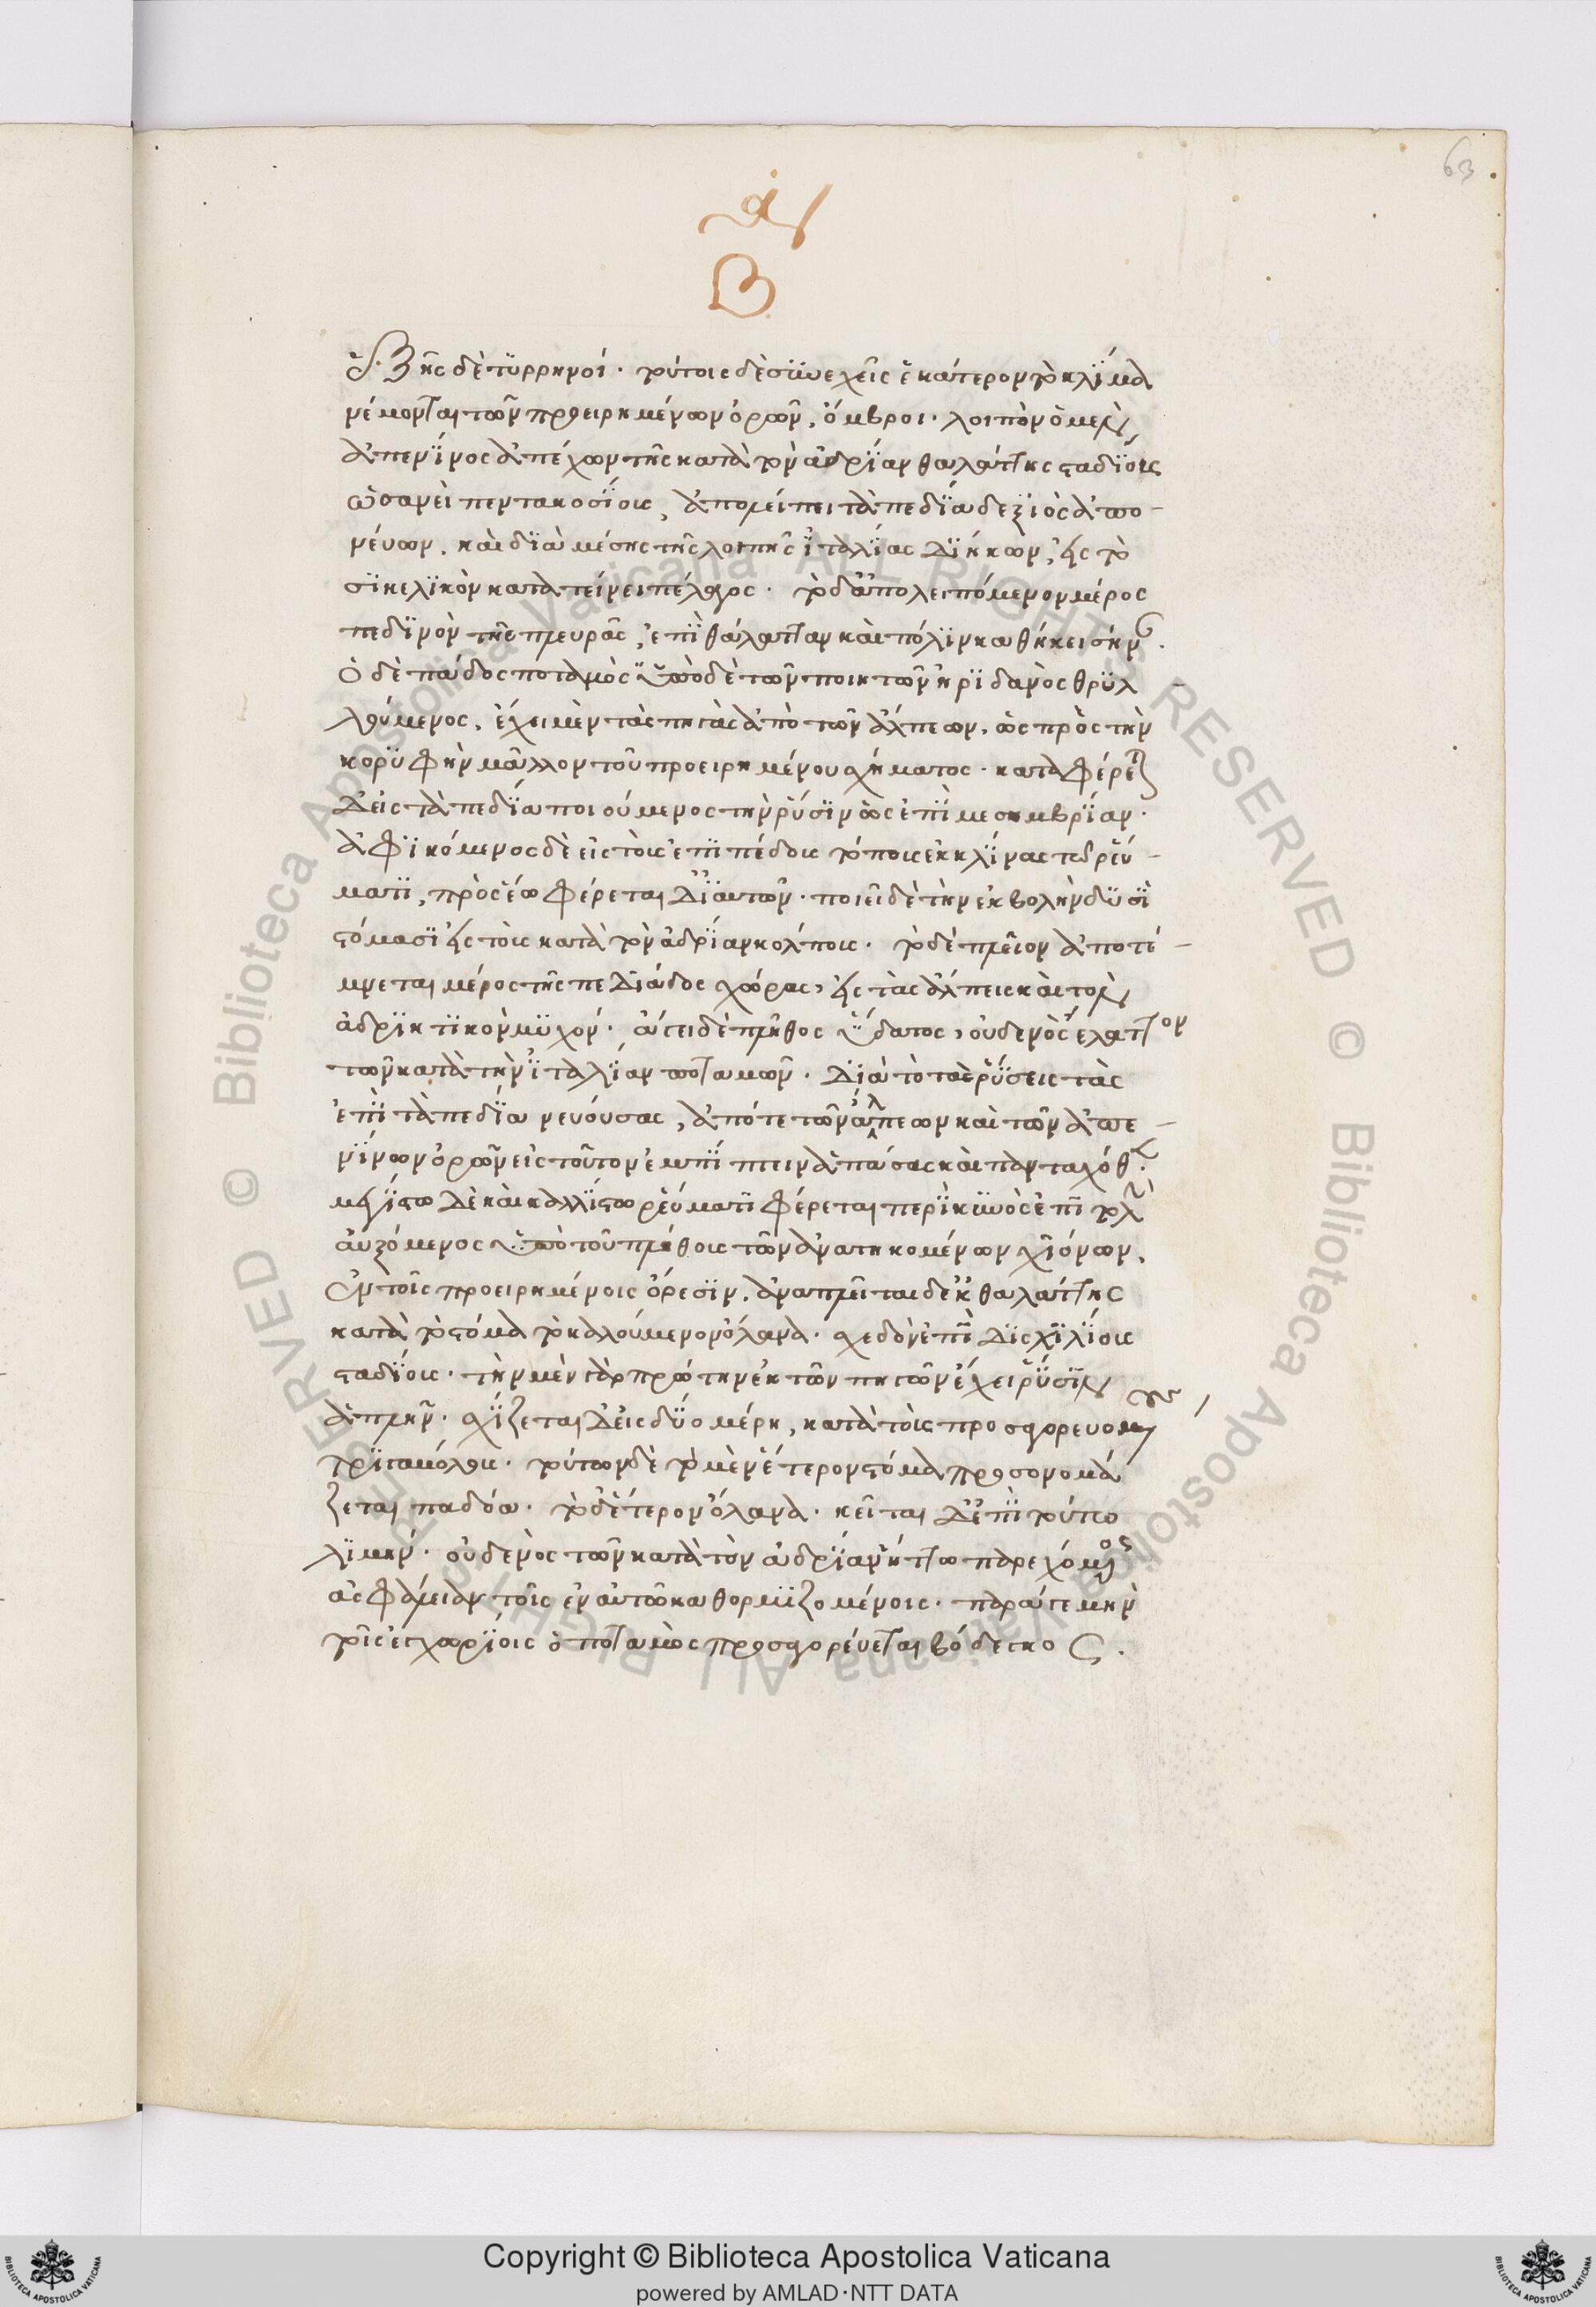 63
α
Β
ἑξῆς δὲ τυρρηνοί· τούτοις δὲ συνεχεῖς ἑκάτερον τὸ κλίμα
νέμονται τῶν προειρημένων ὀρῶν, ὄμβροι· λοιπὸν ὁ μὲν
ἀπεννῖνος ἀπέχων τῆς κατὰ τὸν ἀδρίαν θαλάττης σταδίους
ὡσανεὶ πεντακοσίους, ἀπολείπει τὰ πεδία δεξιὸς ἀπο-
νεύων, καὶ διὰ μέσης τῆς λοιπῆς ἰταλίας διήκων, εἰς τὸ
σικελικὸν κατατείνει πέλαγος· τὸ δ' ἀπολειπόμενον μέρος
πεδινὸν τῆς πλευρᾶς, ἐπὶ θάλατταν καὶ πόλιν καθήκει σήνης.
ὁ δὲ πάδος ποταμὸς ὑπὸ δὲ τῶν ποιητῶν ἠριδανὸς θρυλ-
λούμενος, ἔχει μὲν τὰς πηγὰς ἀπὸ τῶν ἄλπεων, ὡς πρὸς τὴν
κορυφὴν μᾶλλον τοῦ προειρημένου σχήματος· καταφέρεται
δ' εἰς τὰ πεδία ποιούμενος τὴν ῥύσιν ὡς ἐπὶ μεσημβρίαν·
ἀφικόμενος δὲ εἰς τοὺς ἐπιπέδους τόπους ἐκκλίνας τῷ ῥεύ-
ματι, πρὸς ἕω φέρεται δι' αὐτῶν· ποιεῖ δὲ τὴν ἐκβολὴν δυσὶ
στόμασι εἰς τοὺς κατὰ τὸν ἀδρίαν κόλπους· τὸ δὲ πλεῖον ἀποτέ-
μνεται μέρος τῆς πεδιάδος χώρας, εἰς τὰς ἄλπεις καὶ τὸν
ἀδριητικὸν μυχόν· ἄγει δὲ πλῆθος ὕδατος, οὐδενὸς ἔλαττον
τῶν κατὰ τὴν ἰταλίαν ποταμῶν· διὰ τὸ τὰς ῥύσεις τὰς
ἐπὶ τὰ πεδία νευούσας, ἀπό τε τῶν ἄλπεων καὶ τῶν ἀπε-
νίνων ὀρῶν εἰς τοῦτον ἐμπίπτειν ἁπάσας καὶ πανταχόθεν.
μεγίστῳ δὲ καὶ καλλίστῳ ῥεύματι φέρεται περὶ κυνὸς ἐπιτολὴν
αὐξόμενος ὑπὸ τοῦ πλήθους τῶν ἀνατηκομένων χιόνων,
ἐν τοῖς προειρημένοις ὄρεσιν. ἀναπλεῖται δ' ἐκ θαλάττης
κατὰ τὸ στόμα τὸ καλούμενον ὄλανα· σχεδὸν ἐπὶ δισχιλίους
σταδίους· τὴν μὲν γὰρ πρώτην ἐκ τῶν πηγῶν ἔχει ῥύσιν
ἁπλῆν· σχίζεται δ' εἰς δύο μέρη, κατὰ τοὺς προσαγορευομένους
τριγαμόλους· τούτων δὲ τὸ μὲν ἕτερον στόμα προσονομά
ζεται παδόα· τὸ δ' ἕτερον ὄλανα· κεῖται δ' ἐπὶ τούτῳ
λιμήν· οὐδενὸς τῶν κατὰ τὸν ἀδρίαν ἥττω παρεχόμενος
ἀσφάλειαν τοῖς ἐν αὐτῷ καθορμιζομένοις· παρά γε μὴν
τοῖς ἐγχωρίοις ὁ ποταμὸς προσαγορεύεται βόδεγκος.